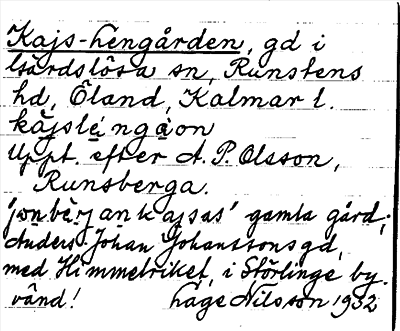 Kajs-hengården, gd i
Gärdslösa sn, Runstens
hd, Öland, Kalmar l.
Uppt. efter A. P. Olsson,
Runsberga.
gamla gård,
Anders Johan Johanssons gd,
med Himmelriket, i Störlinge by.
vänd! hage Nilsson 1932